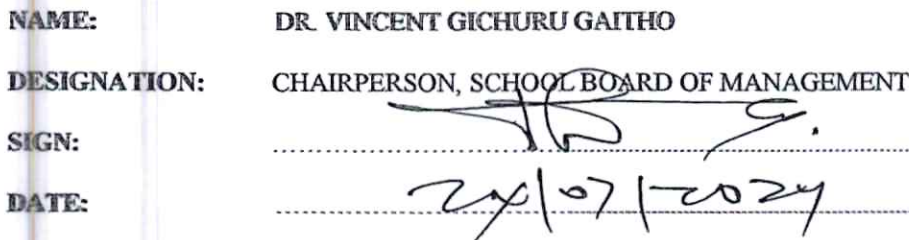 NAME: DR. VINCENT GICHURU GAITHO
DESIGNATION: CHAIRPERSON, SCHOOL BOARD OF MANAGEMENT
SIGN:
DATE: 24/07/2024